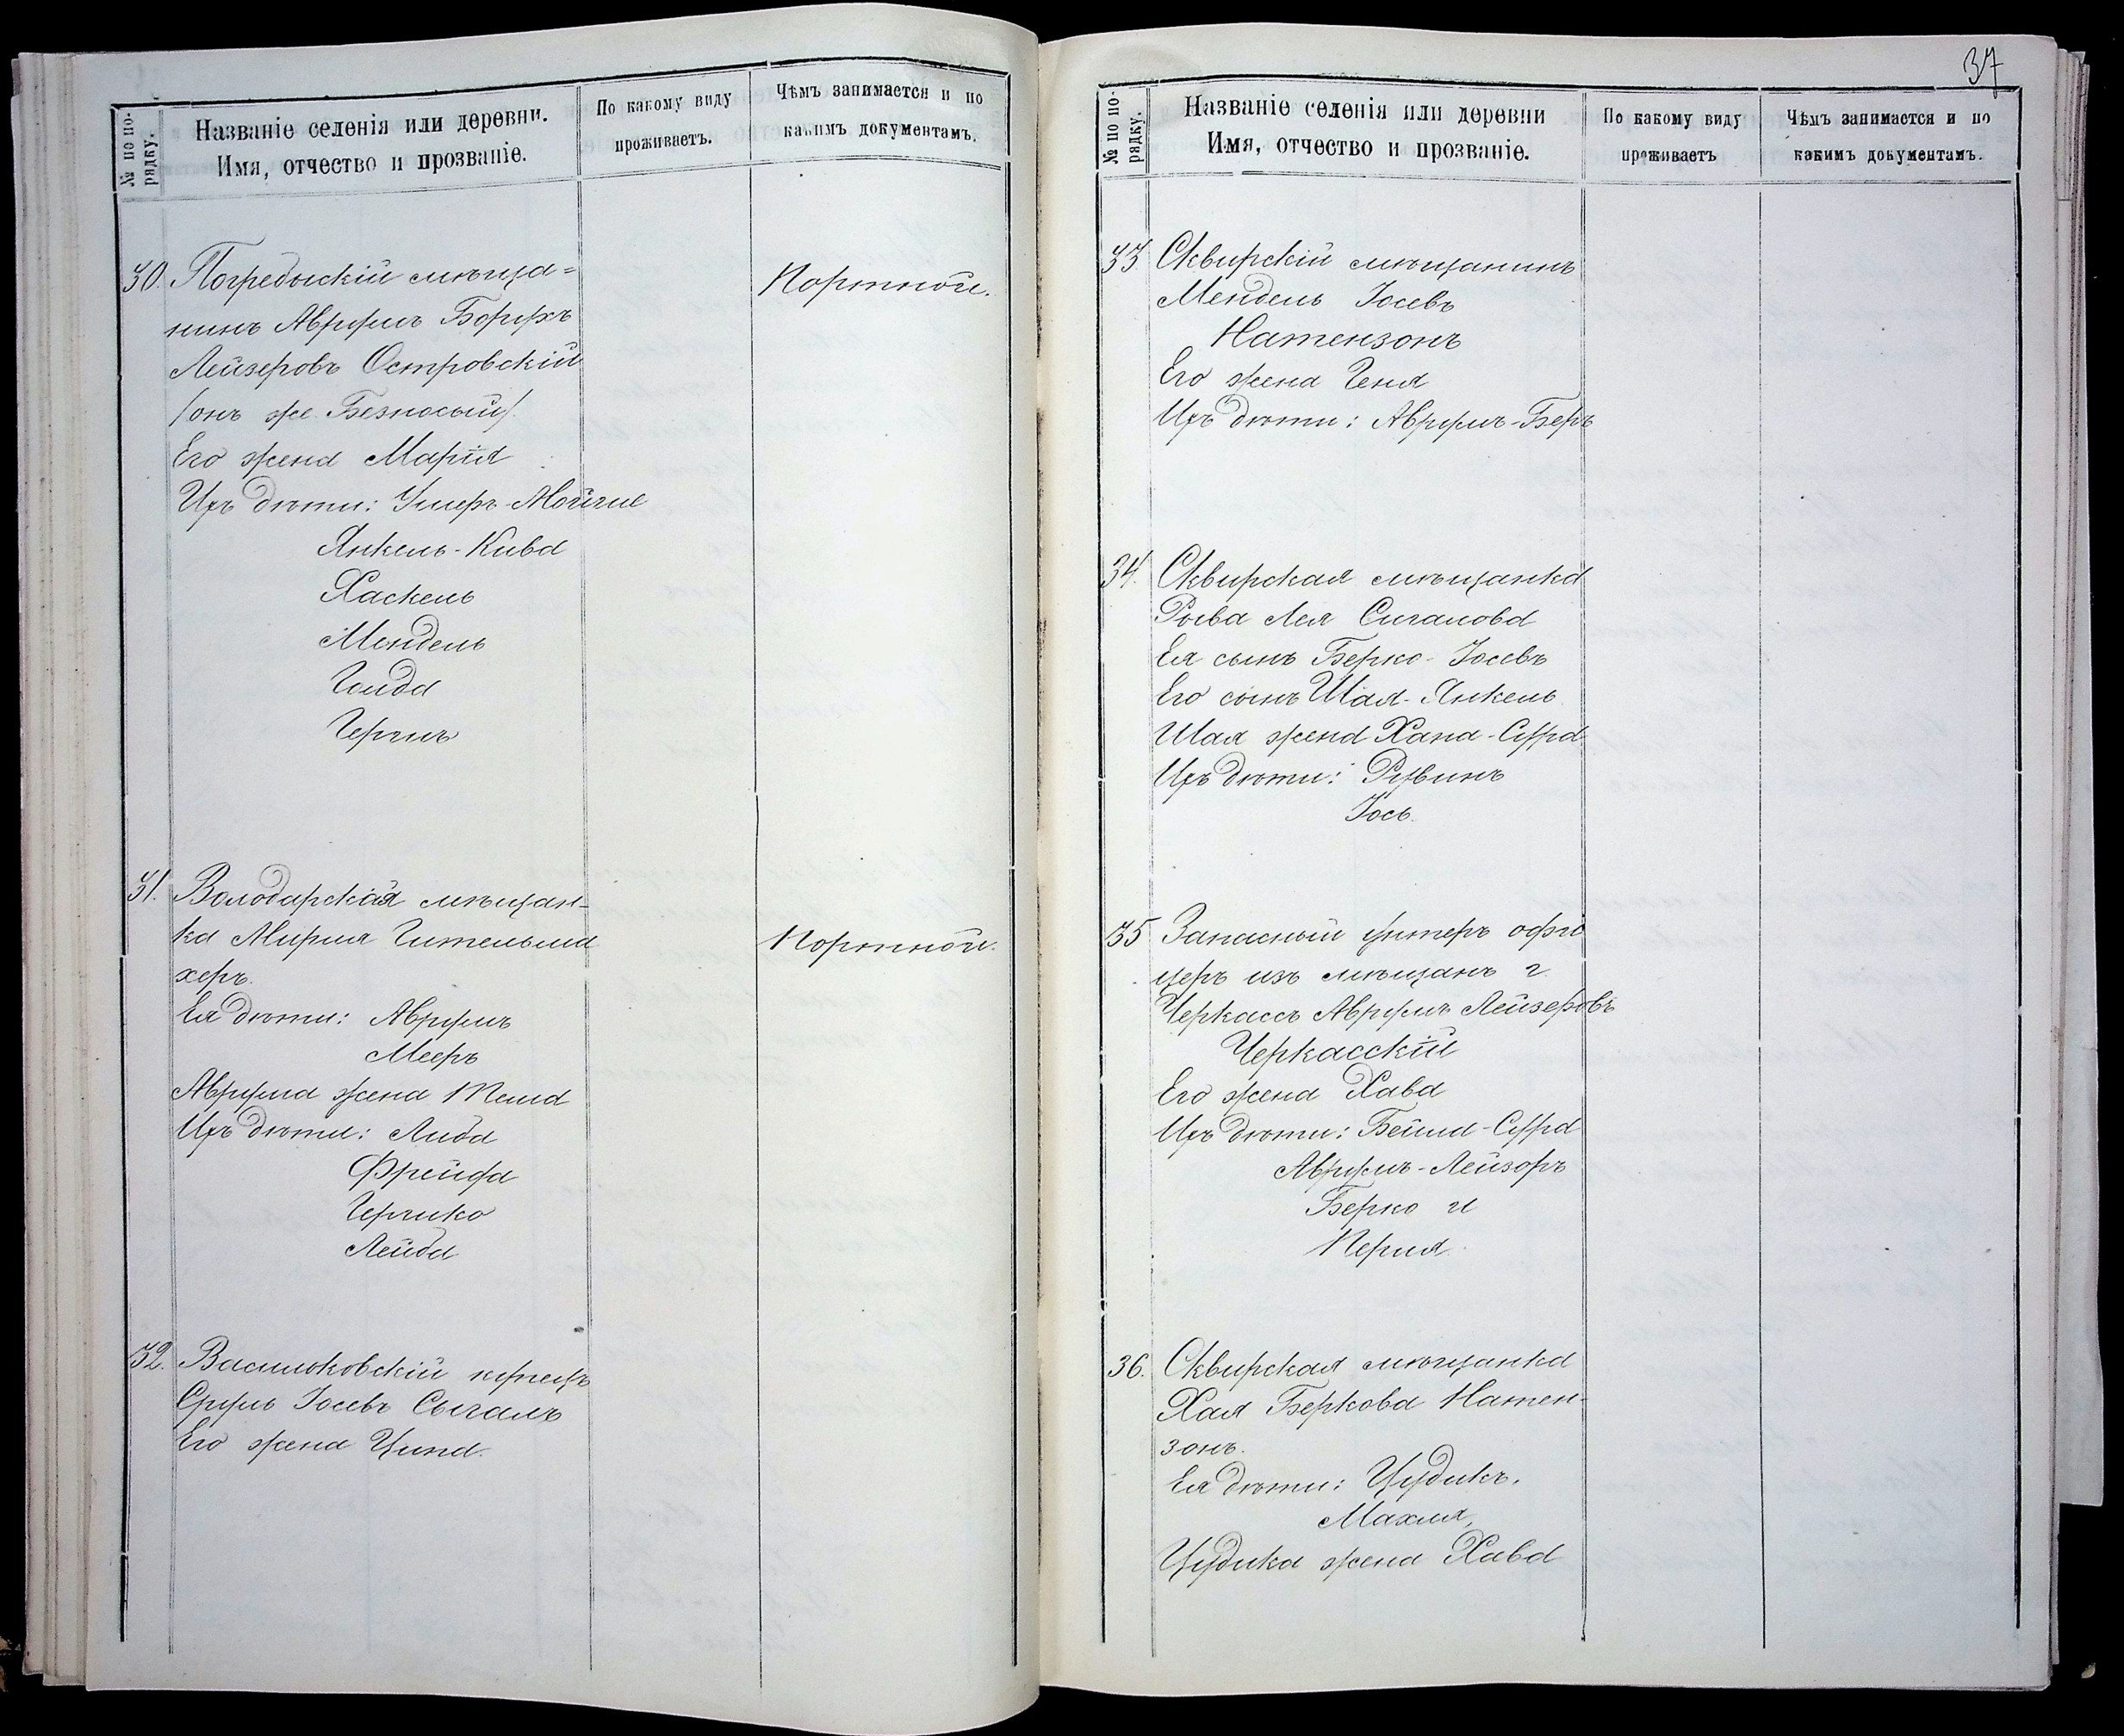 № по по-
рядку.
Названіе селенія или деревни.
Имя, отчество и прозваніе.
По какому виду
проживаетъ.
Чѣмъ занимается и по
какимъ документамъ.
30. Погребыскій мѣща=
нинъ Аврумъ Борухъ
Лейзеровъ Островскій
/онъ же Безносый/.
Его жена Марія
Ихъ дѣти: Ушеръ-Мойше
Янкель-Кива
Хаскель
Мендель
Гольда
Гершъ
Портной.
31. Володарская мѣщан-
ка Мирля Гительма
херъ.
Ея дѣти: Аврумъ
Мееръ
Аврума жена
Ихъ дѣти: Либа
Фрейда
Гершко
Лейба
Портной.
32. Васильковскій купецъ
Сруль Іосевъ Сыгалъ
Его жена Ципа.
37
№ по по-
рядку.
Названіе селенія или деревни
Имя, отчество и прозваніе.
По какому виду
проживаетъ
Чѣмъ занимается и по
какимъ документамъ.
33 Сквирскій мѣщанинъ
Мендель Іосевъ
Натензонъ
Его жена Геня
Ихъ дѣти: Аврумъ-Беръ
34. Сквирская мѣщанка
Рыва Лея Сигалова
Ея сынъ Берко-Іосевъ
Его сынъ Шая-Янкель
Шая жена Хана-Сура
Ихъ дѣти: Рувинъ
Іось.
35 Запасный унтеръ офи
церъ изъ мѣщанъ г.
Черкассъ Аврумъ Лейзеровъ
Черкасскій
Его жена Хава
Ихъ дѣти: Бейла-Сура
Аврумъ-Лейзоръ
Берко и
Перля.
36. Сквирская мѣщанка
Хая Беркова Натен-
зонъ.
Ея дѣти: Цудикъ.
Махля,
Цудика жена Хава